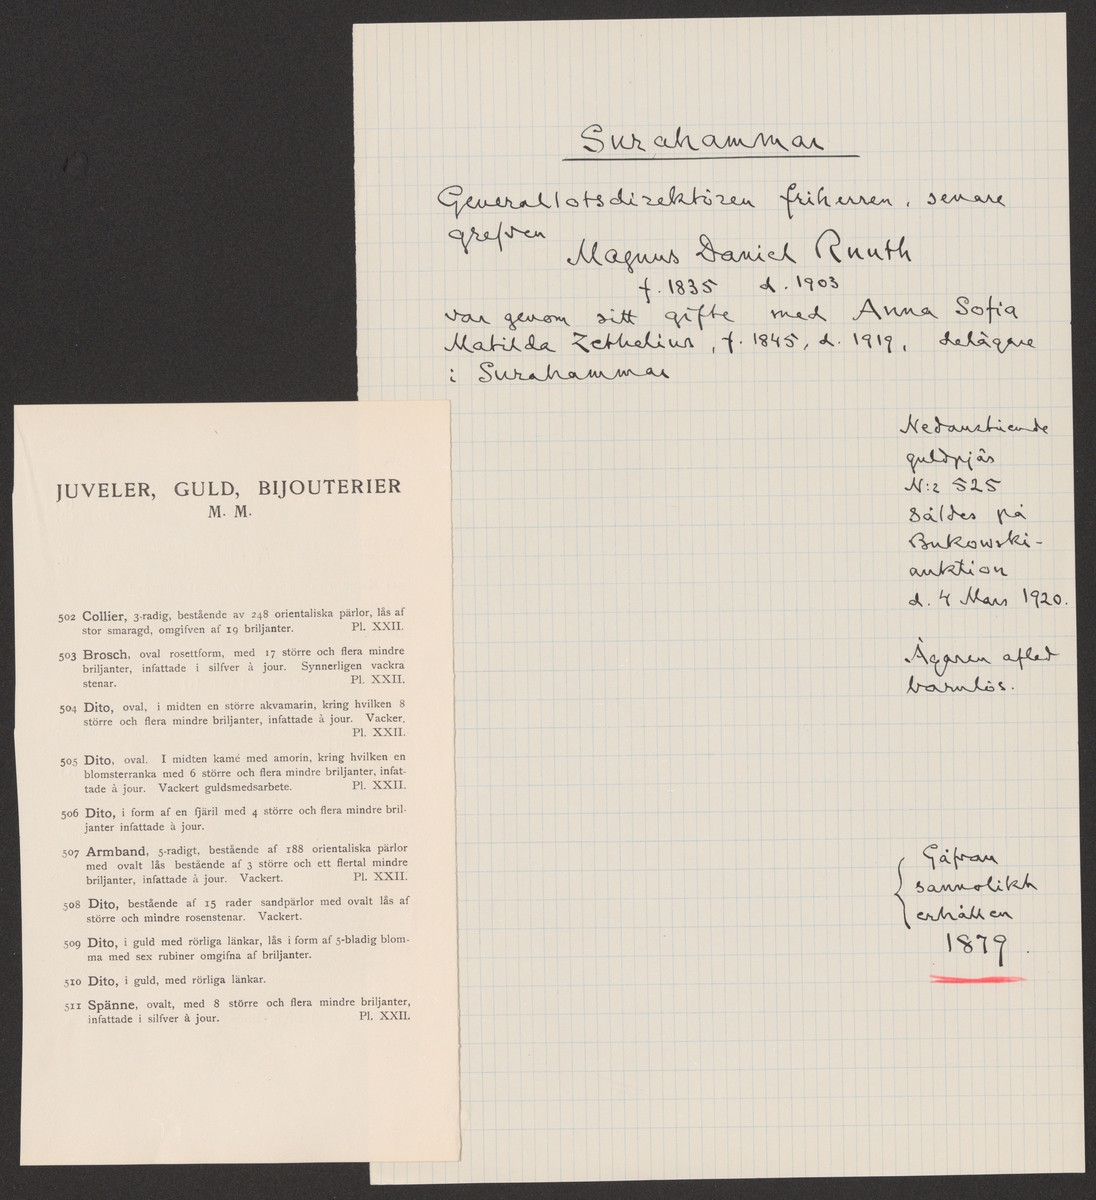 Surahammar
Generallotsdirektören friherren, senare
grefven Magnus Daniel Ruuth
f. 1835 d. 1903
var genom sitt gifte med Anna Sofia
Matilda Zethelius, f. 1845, d. 1919, delägare
i Surahammar
Nedanstående
guldpjäs
N:r 525
såldes på
Bukowski-
auktion
d. 4 Mars 1920.
Ägaren afled
barnlös.
Gåfvan
sannolikt
erhållen
1879.
JUVELER, GULD, BIJOUTERIER
M. M.
502 Collier, 3-radig, bestående av 248 orientaliska pärlor, lås af
stor smaragd, omgifven af 19 briljanter. Pl. XXII.
503 Brosch, oval rosettform, med 17 större och flera mindre
briljanter, infattade i silfver à jour. Synnerligen vackra
stenar. Pl. XXII.
504 Dito, oval, i midten en större akvamarin, kring hvilken 8
större och flera mindre briljanter, infattade à jour. Vacker.
Pl. XXII.
505 Dito, oval. I midten kamé med amorin, kring hvilken en
blomsterranka med 6 större och flera mindre briljanter, infat-
tade à jour. Vackert guldsmedsarbete. Pl. XXII.
506 Dito, i form af en fjäril med 4 större och flera mindre bril-
janter infattade à jour.
507 Armband, 5-radigt, bestående af 188 orientaliska pärlor
med ovalt lås bestående af 3 större och ett flertal mindre
briljanter, infattade à jour. Vackert. Pl. XXII.
508 Dito, bestående af 15 rader sandpärlor med ovalt lås af
större och mindre rosenstenar. Vackert.
509 Dito, i guld med rörliga länkar, lås i form af 5-bladig blom-
ma med sex rubiner omgifna af briljanter.
510 Dito, i guld, med rörliga länkar.
511 Spänne, ovalt, med 8 större och flera mindre briljanter,
infattade i silfver à jour. Pl. XXII.